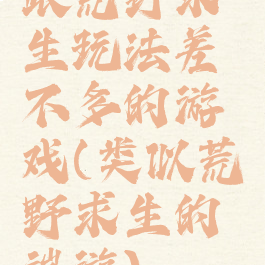 跟荒野求
生玩法差
不多的游
戏(类似荒
野求生的
端游)